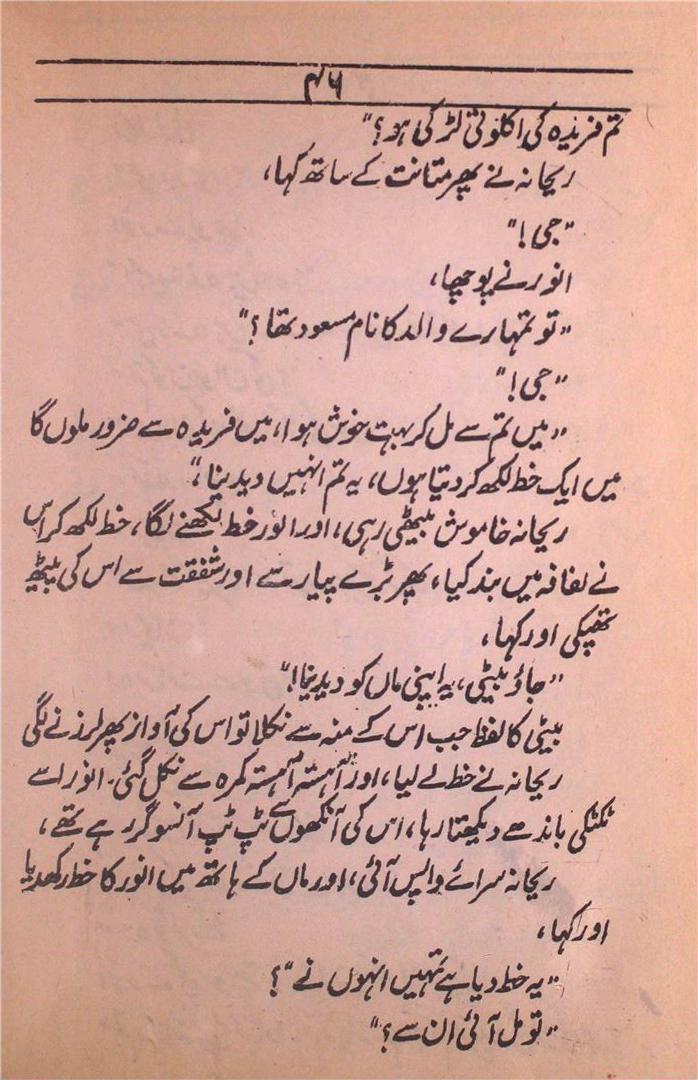 ۴۶
تم فریدہ کی اکلوتی لڑکی ہو؟"
ریحانہ نے پھر متانت کے ساتھ کہا،
"جی!"
انور نے پوچھا،
"تو تمہارے والد کا نام مسعود تھا؟"
"جی!"
"میں تم سے مل کر بہت خوش ہوا، میں فریدہ سے ضرور ملوں گا
میں ایک خط لکھ کر دیتا ہوں، یہ تم انہیں دیدینا،"
ریحانہ خاموش بیٹھی رہی، اور انور خط لکھنے لگا، خط لکھ کر اس
نے لفافہ میں بند کیا، پھر بڑے پیار سے اور شفقت سے اس کی پیٹھ
تھپکی اور کہا،
"جاؤ بیٹی، یہ اپنی ماں کو دیدینا!"
بیٹی کا لفظ جب اس کے منہ سے نکلا تو اس کی آواز پھر لرزنے لگی
ریحانہ نے خط لے لیا، اور آہستہ آہستہ کمرہ سے نکل گئی۔ انور اسے
ٹکٹکی باندھے دیکھتا رہا، اس کی آنکھوں سے ٹپ ٹپ آنسو گر رہے تھے،
ریحانہ سرائے واپس آئی، اور ماں کے ہاتھ میں انور کا خط رکھدیا
اور کہا،
"یہ خط دیا ہے تمہیں انہوں نے"؟
"تو مل آئی ان سے؟"